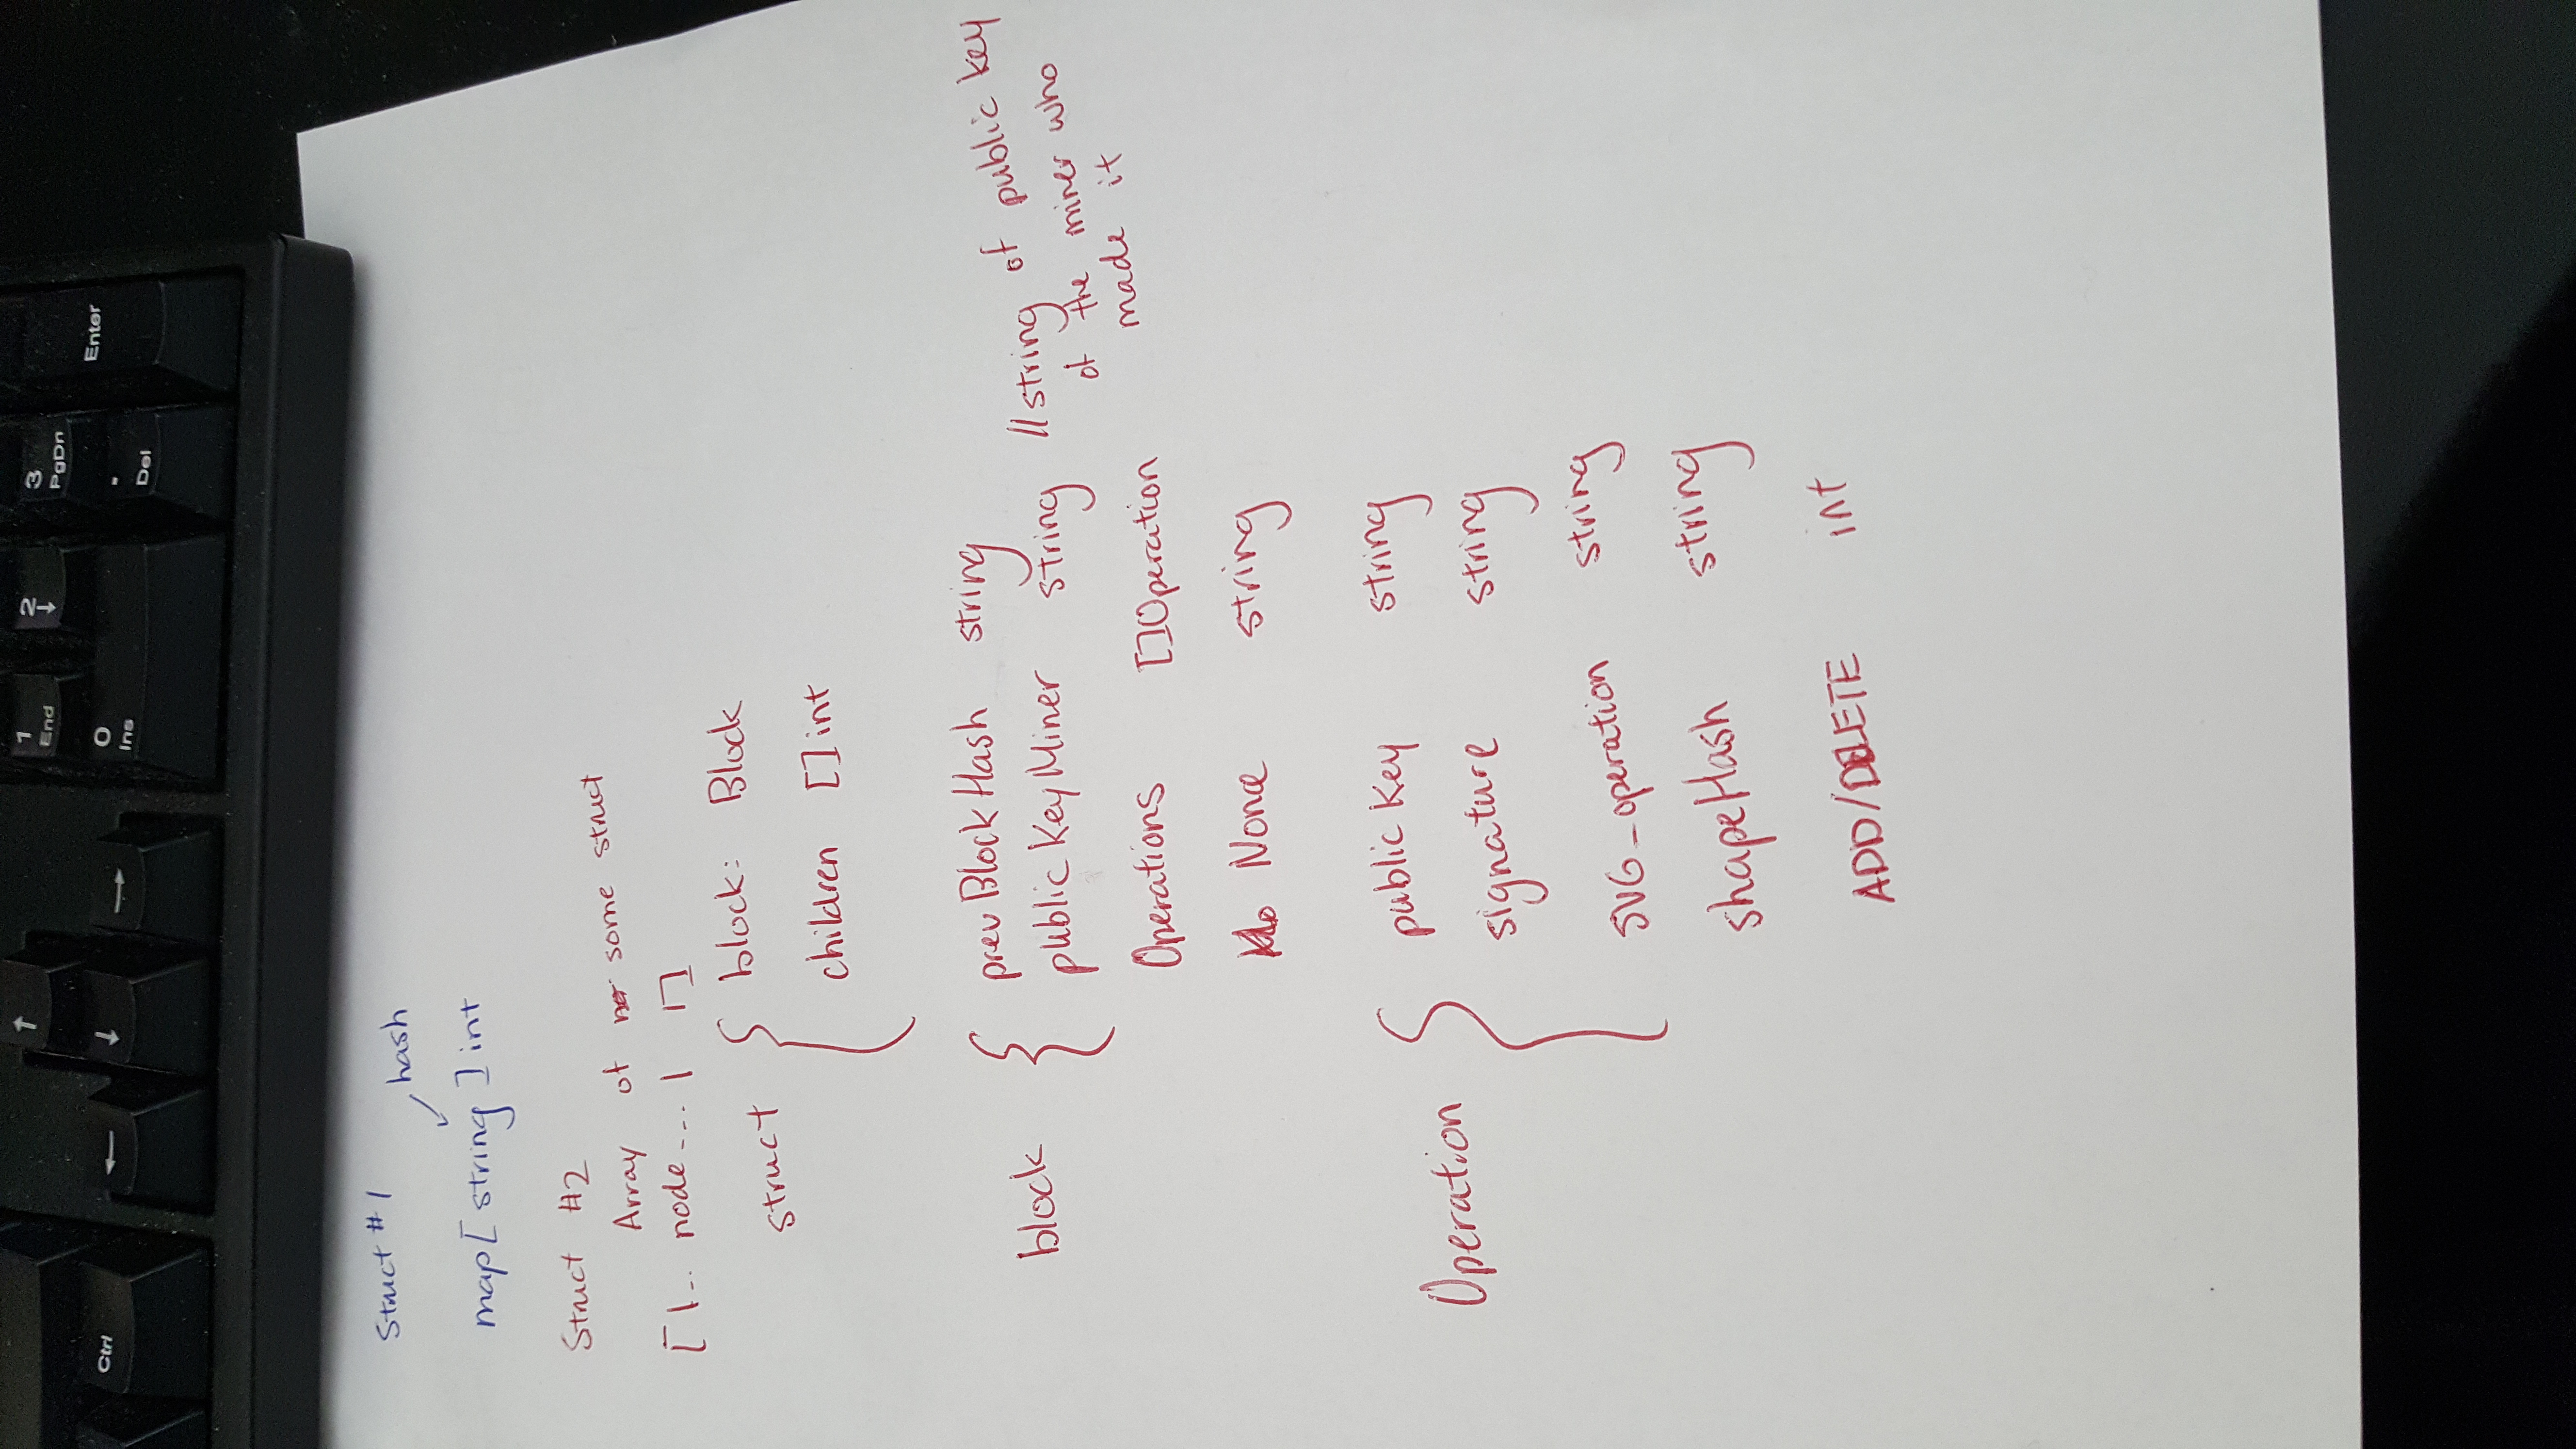 ↑
1
End
2
↓
3
PgDn
Enter
Ctrl
←
↓
→
0
Ins
.
Del
Struct #1
hash
map[string]int
Struct #2
Array of some struct
[|.. node --- | |]
struct { block: Block
children []int
block { prevBlockHash string
publicKeyMiner string //string of public key
of the miner who
made it
Operations []Operation
Nonce string
Operation { public Key string
signature string
SVG_operation string
shapeHash string
ADD/DELETE int